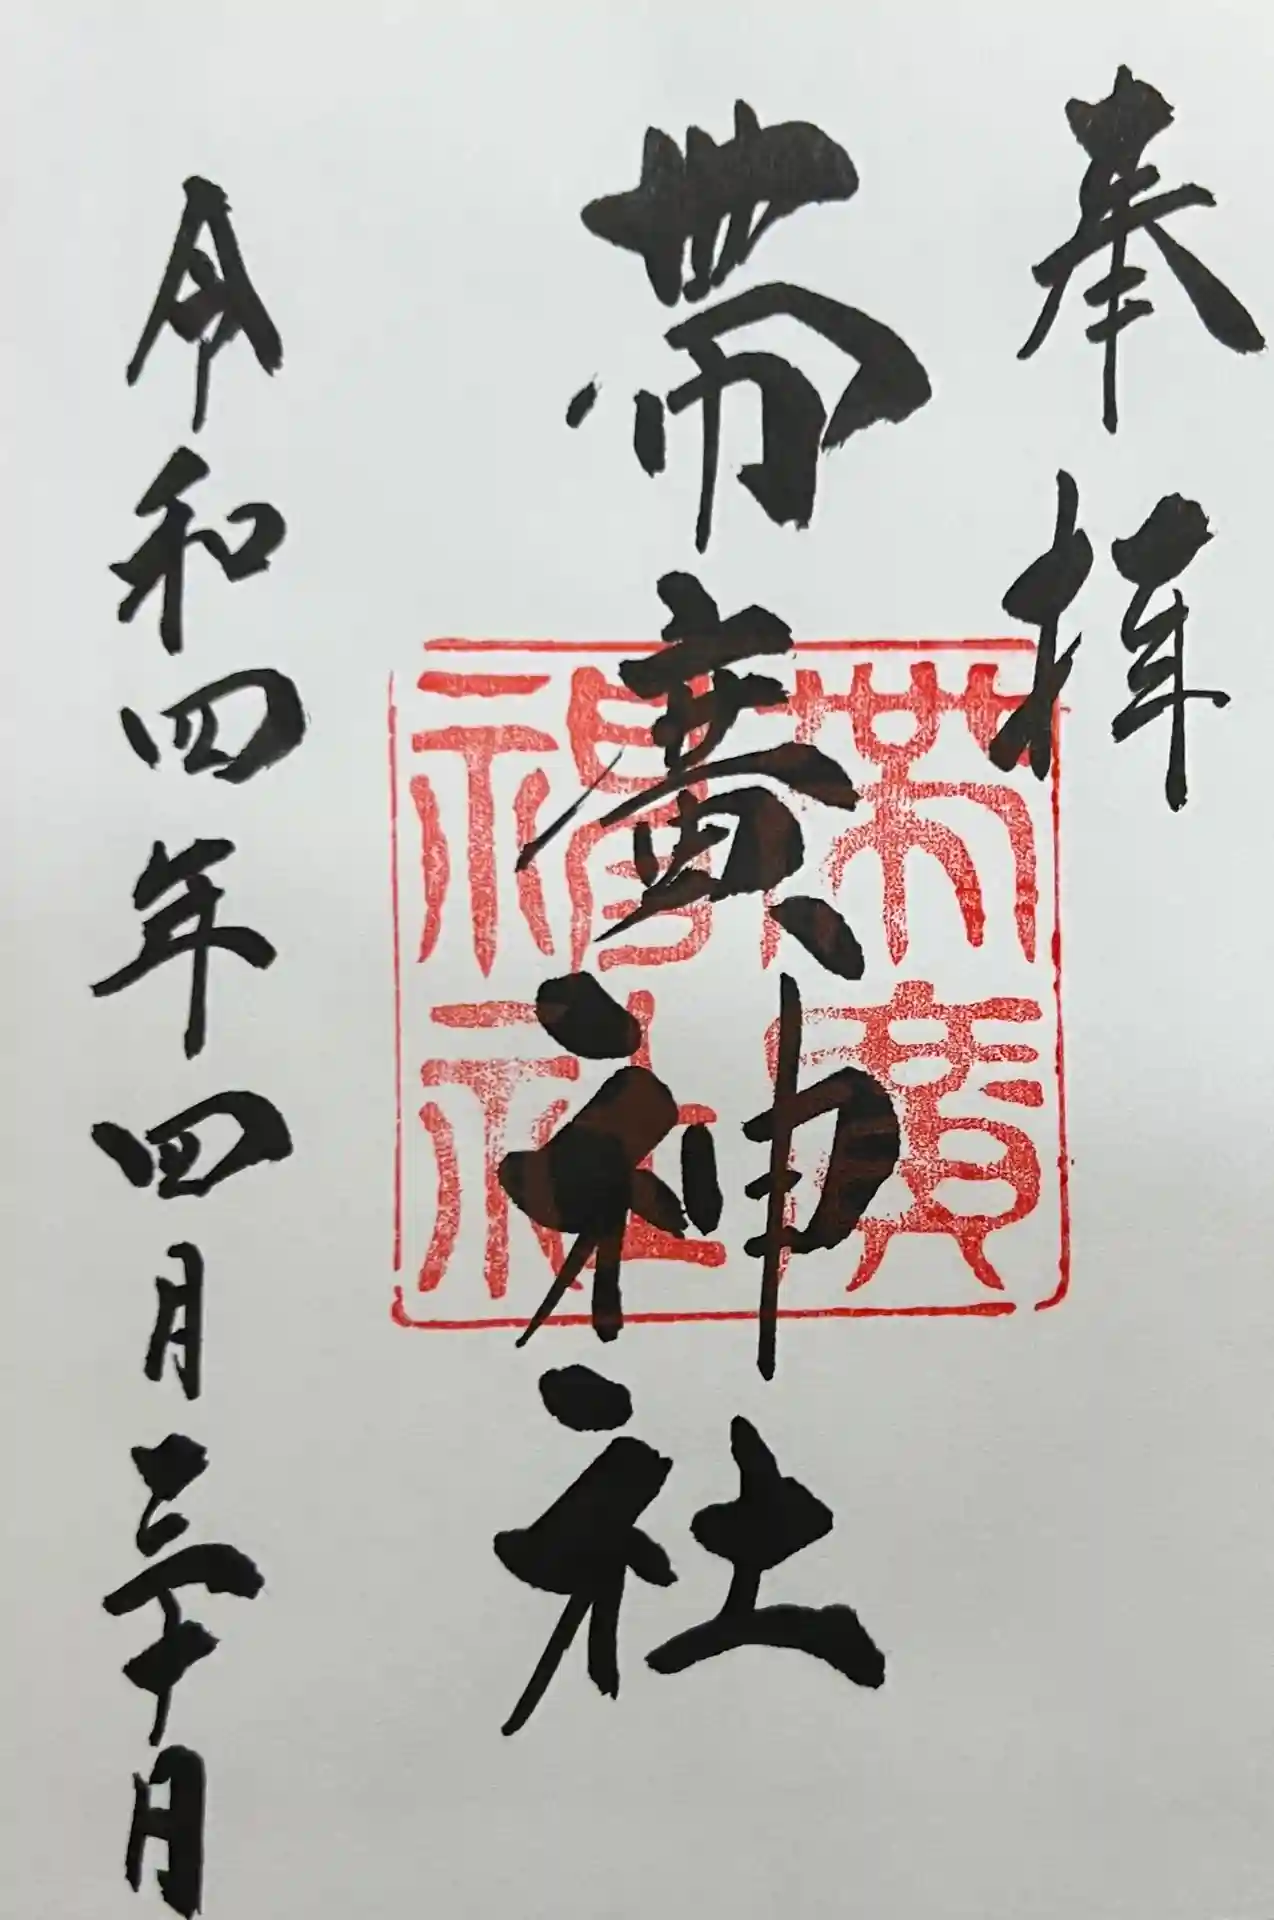 奉拝
帯廣神社
帯廣神社
令和四年四月三十日